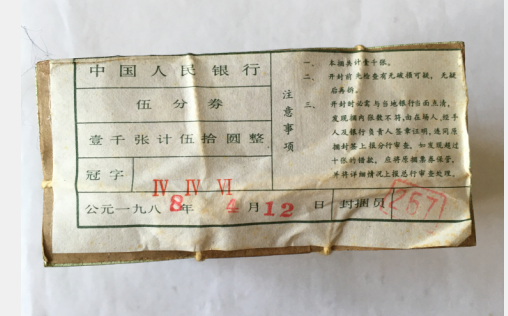 中国人民银行
伍分券
壹千张计伍拾圆整
冠字 IV IV VI
公元一九八8年 4月12日 封捆员 267
注意事项
一、本捆共计壹千张。
二、开封前先检查有无破损可疑，无疑
后再拆。
三、开封时必需与当地银行当面点清，
发现捆内张数不符，由在场人、经手
人及银行负责人签章证明，连同原
捆封签上报分行审查。如发现超过
十张的错款，应将原捆票券保管，
并将详细情况上报总行审查处理。